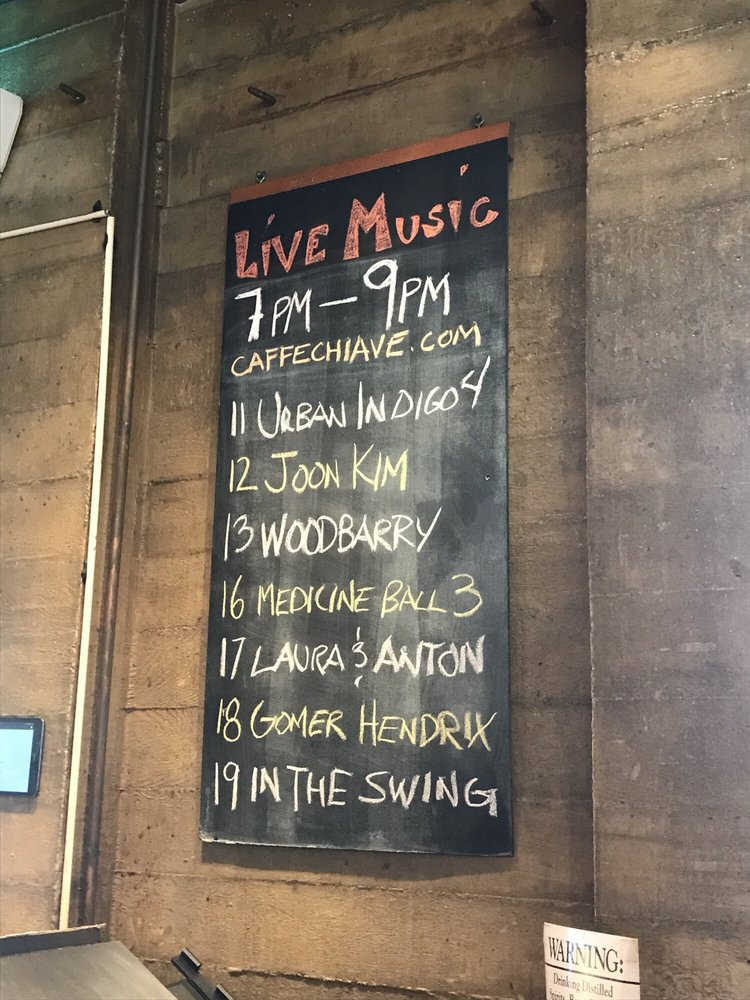 LiVE MUSiC
7PM - 9PM
CAFFECHIAVE.COM
11 URBAN INDIGO 4
12 JOON KIM
13 WOODBARRY
16 MEDICINE BALL 3
17 LAURA & ANTON
18 GOMER HENDRIX
19 IN THE SWING
WARNING:
Drinking Distilled
Spirits,